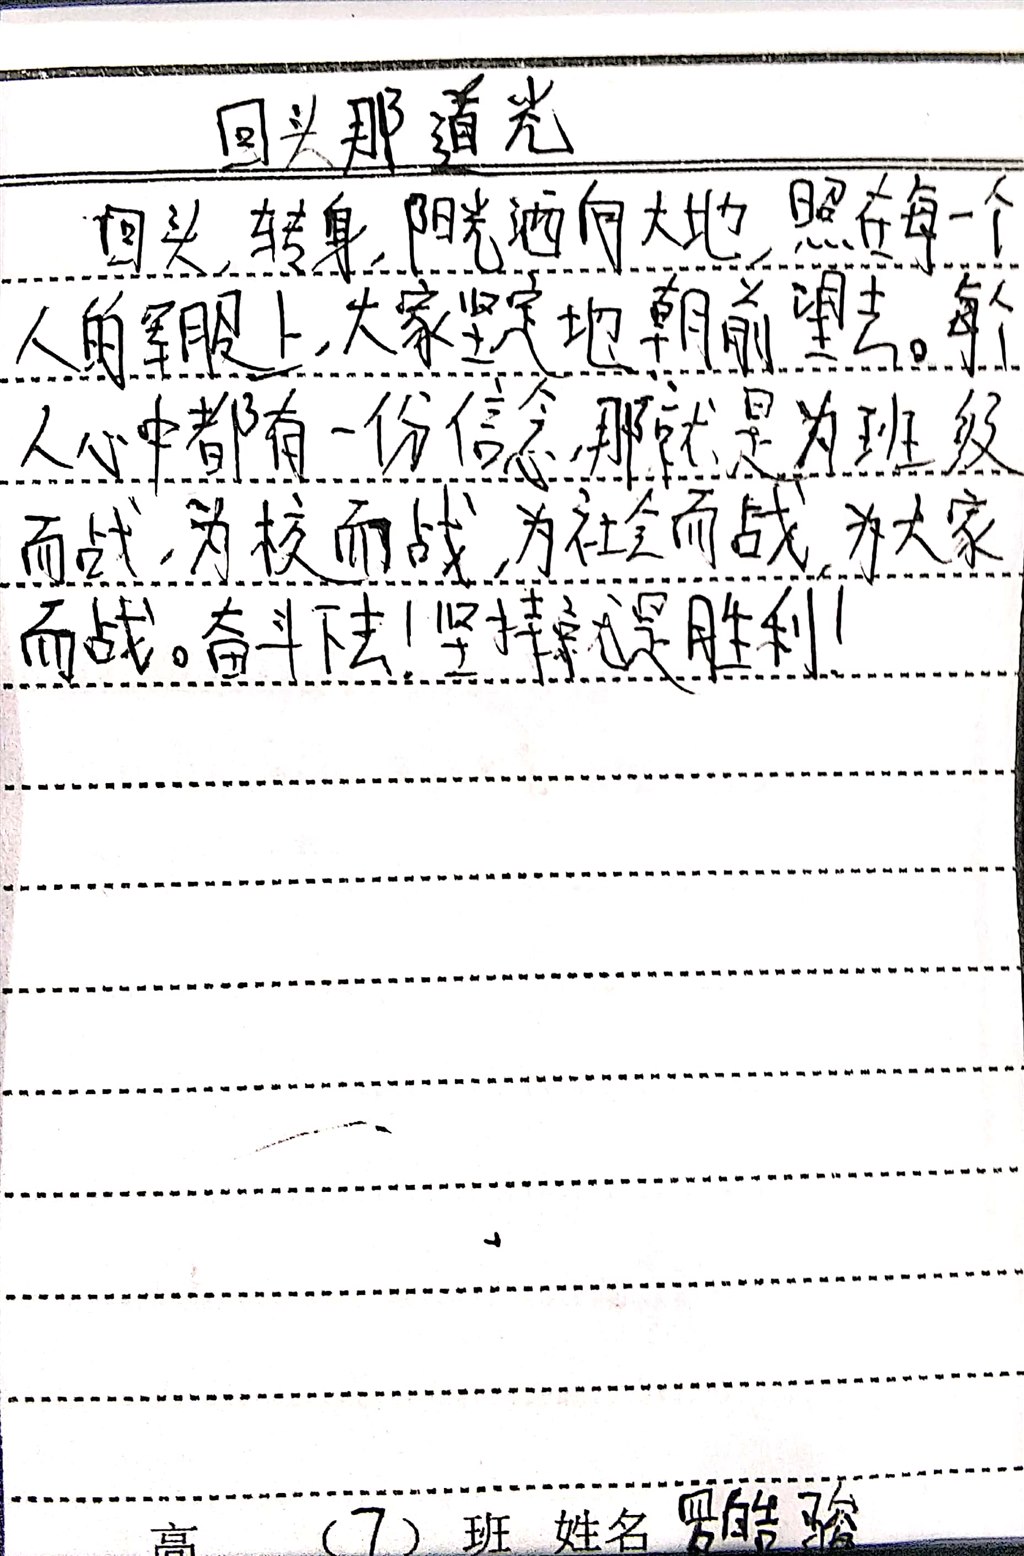 回头那道光
回头,转身,阳光洒向大地,照在每一个
人的军服上,大家坚定地朝前望去。每个
人心中都有一份信念,那就是为班级
而战,为校而战,为社会而战,为大家
而战。奋斗下去!坚持就是胜利!
高 (7) 班 姓名 罗皓骏